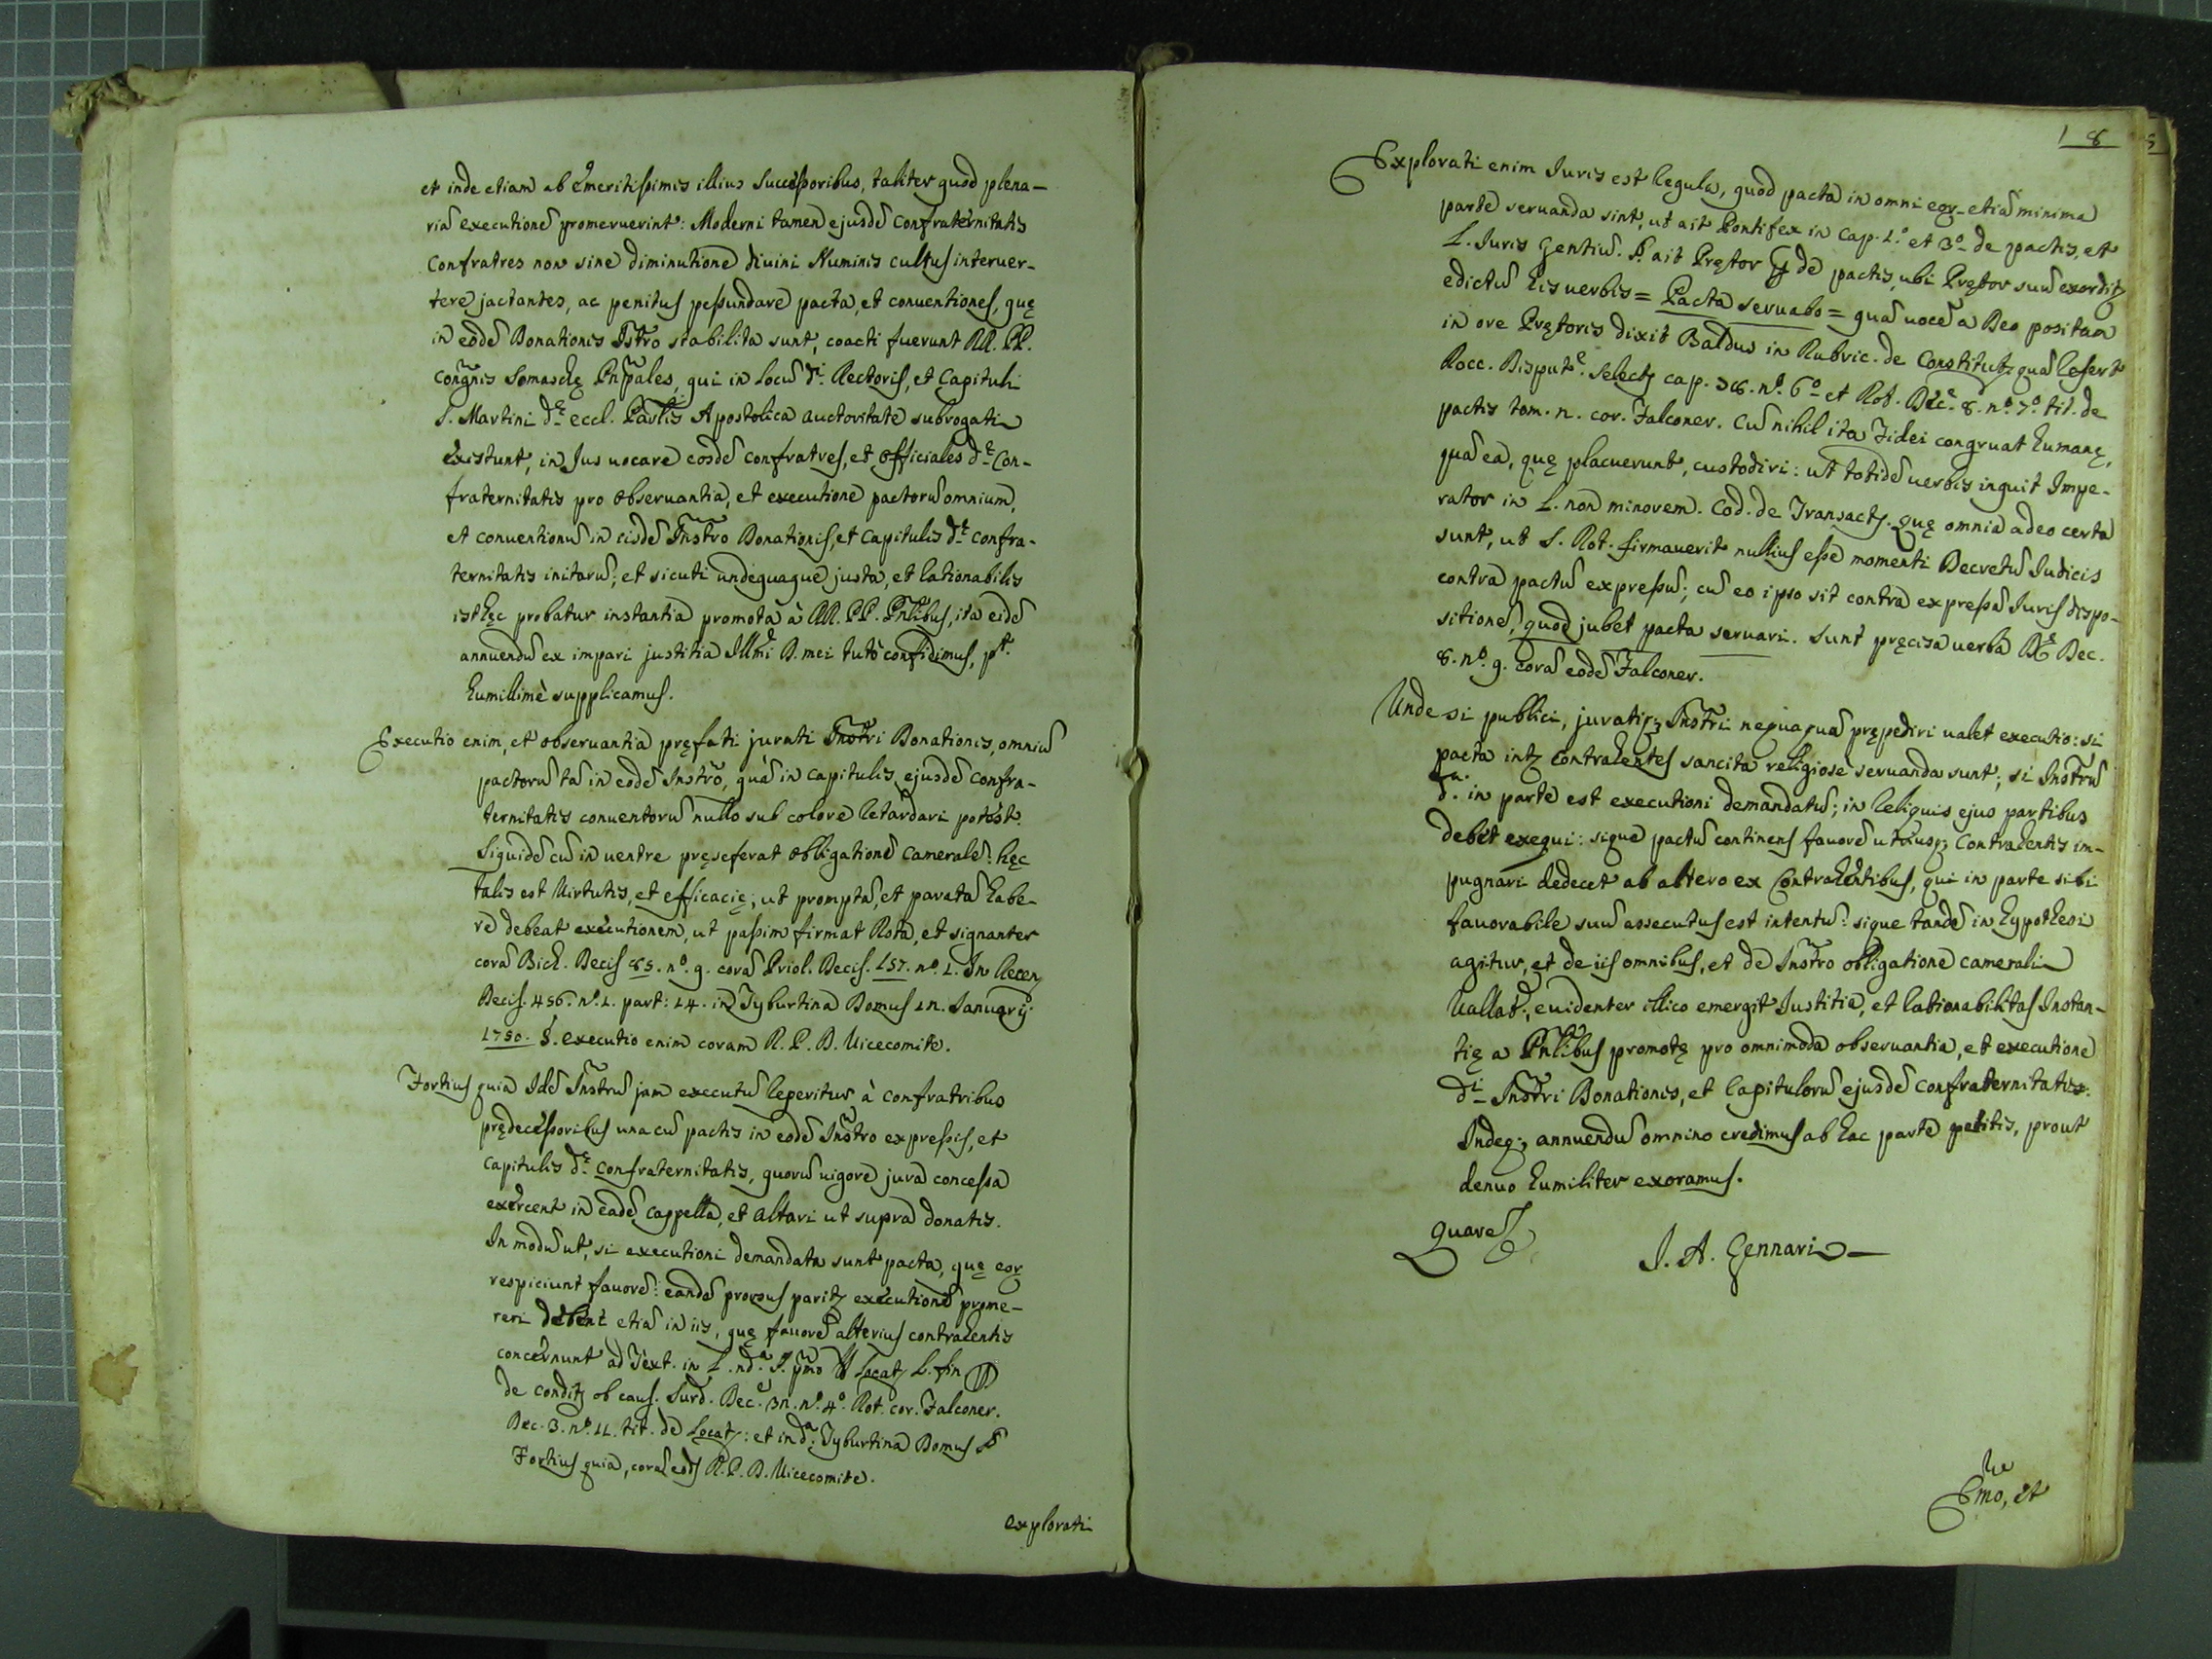 et inde etiam ab Emeritissimis illius Successoribus, taliter quod plena-
riã executionẽ promeruerint: Moderni tamen ejusdẽ Confraternitatis
Confratres non sine diminutione divini Numinis cultus interver-
tere jactantes, ac penitus pessundare pacta, et conventiones, quę
in eodẽ Donationis Istro stabilita sunt, coacti fuerunt RR. PP.
Congñis Somaschę Pñpales, qui in Locũ di. Rectoris, et Capituli
S. Martini dę eccl. Apostolica auctoritate subrogati
Existunt, in Jus vocare eosdẽ confratres, et officiales dę Con-
fraternitatis pro observantia, et executione pactorũ omnium,
et conventionũ in eisdẽ Instro Donationis, et Capitulis dę confra-
ternitatis initarũ; et sicuti undequaque justa, et rationabilis
isthęc probatur instantia promota à RR. PP. Pñlibus, ita eidẽ
annuendũ ex impari justitia Illmi D. mei tutò confidimus, pt.
humillimè supplicamus.
Executio enim, et observantia pręfati jurati Instri Donationis, omniũ
pactorũ tã in eodẽ Instro, quã in capitulis ejusdẽ confra-
ternitatis conventorũ nullo sub colore retardari potest.
Siquidẽ cũ in ventre pręseferat obligationẽ Cameralẽ: hęc
talis est Virtutis, et efficacię, ut promptã, et paratã habe-
re debeat executionem, ut passim firmat Rota, et signanter
corã Bich. Decis 85. nº. 9. corã Priol. Decis. 157. nº. 1. In Recen
Decis. 456. nº. 1. part: 14. in Tyburtina Domus 12. Januarij
1750. §. executio enim coram R. P. D. Vicecomite.
Fortius quia Idẽ Instrũ jam executũ reperitur à confratribus
prędecessoribus una cũ pactis in eodẽ Instro expressis, et
capitulis dę confraternitatis, quorũ vigore jura concessa
exercent in eadẽ Cappella, et altari ut supra donatis.
In modũ ut, si executioni demandata sunt pacta, quę eor
respiciunt favorẽ: eandẽ prorsus parit executionẽ prome-
reri debent etiã in iis, quę favorẽ alterius contrahentis
concernunt ad Text. in L. §. pmo ff Locat L. fin ff
de condit ob caus. Surd. Dec. 32. nº. 4º. Rot. cor. Falconer.
Dec. 3. nº. 11. tit. de Locat: et in dã Tyburtina Domus §
Fortius quia, corã eodẽ R. P. D. Vicecomite.
explorati
18
Explorati enim Iuris est regula, quod pacta in omni eor etiã minima
parte servanda sint, ut ait Pontifex in Cap. 1.º et 3º de pactis, et
L. Iuris gentiũ. §. ait Prętor ff de pactis, ubi Prętor suũ exordit
edictũ his verbis = Pacta servabo = quã vocẽ a Deo positam
in ore Prętoris dixit Baldus in Rubric. de Constitut quã refert
Rocc. Disput. Select cap. 38. nº. 6º et Rot. Dec. 8. nº. 7º. tit. de
pactis tom. 2. cor. Falconer. Cũ nihil ita Fidei congruat humanę,
quã ea, quę placuerunt, custodiri: ut totidẽ verbis inquit Impe-
rator in L. non minorem. Cod. de Transact. Quę omnia adeo certa
sunt, ut S. Rot. firmaverit nullius esse momenti Decretũ Iudicis
contra pactũ expressũ; cũ eo ipso sit contra expressã Iuris dispo-
sitionẽ, quod jubet pacta servari. Sunt pręcisa verba Dec.
8. nº. 9. corã eodẽ Falconer.
Unde si publici, juratiq; Instri nequaquã prępediri valet executio: si
pacta int contrahentes sancita religiose servanda sunt; si Instrũ
d. in parte est executioni demandatũ; in reliquis ejus partibus
debet exequi: sique pactũ continens favorẽ utriusq; Contrahentis im-
pugnari dedecet ab altero ex Contrahentibus, qui in parte sibi
favorabile suũ assecutus est intentũ: sique tandẽ in hypothesi
agitur, et de iis omnibus, et de Instro obligatione camerali
Vallat:, evidenter illico emergit Iustitia, et rationabilitas Instan-
tię a Pñlibus promotę pro omnimoda observantia, et executione
di Instri Donationis, et Capitulorũ ejusdẽ confraternitatis.
Indeq; annuendũ omnino credimus ab hac parte petitis, prout
denuo humiliter exoramus.
Quare
J. A. Gennari
Emo, et